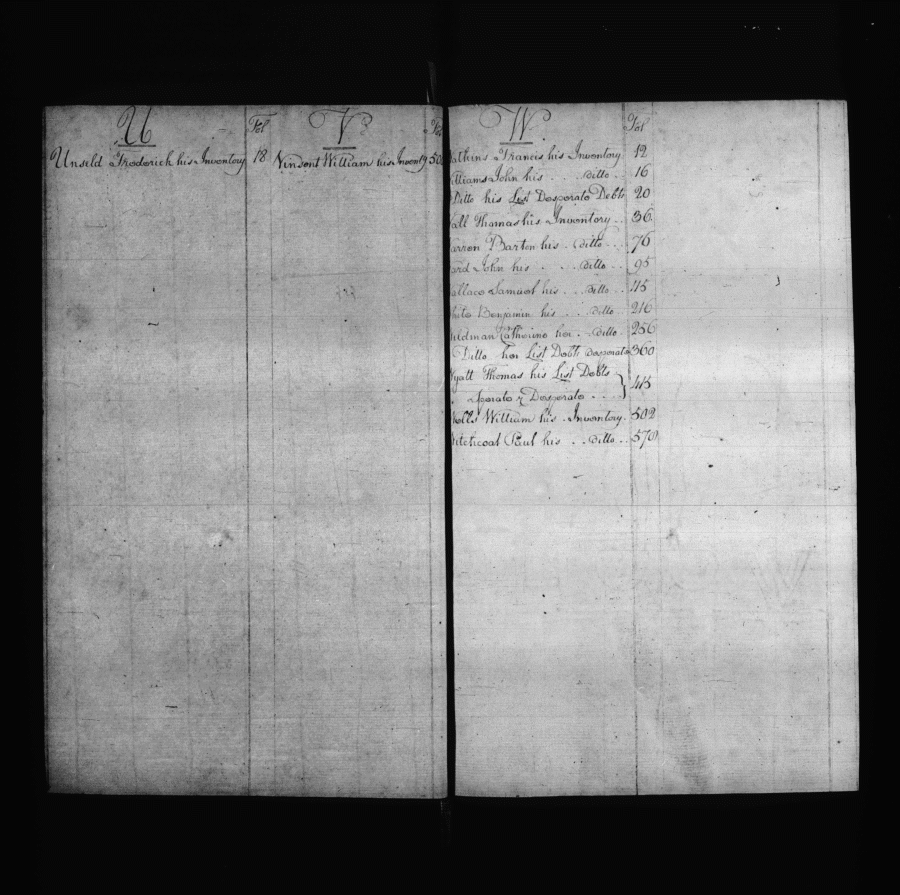 U
Fol
Unseld Frederick his Inventory 18
V
Fol
Vinsent William his Inventy 50
W
Fol
atkins Francis his Inventory 12
illiams John his . . . ditto . . 16
Ditto his List Desperate Debts 20
all Thomas his Inventory . . 36
arren Barton his . ditto . . 76
ard John his . . . ditto . . 95
allace Samuel his . . . ditto . .
hite Benjamin his . . ditto 216
ildman Catherine her . . ditto 256
Ditto her List Debts desperate 360
yatt Thomas his List Debts
Sperate & Desperate . . . . } 415
ells William his . Inventory . 502
itchcoat Paul his . . ditto . . 570